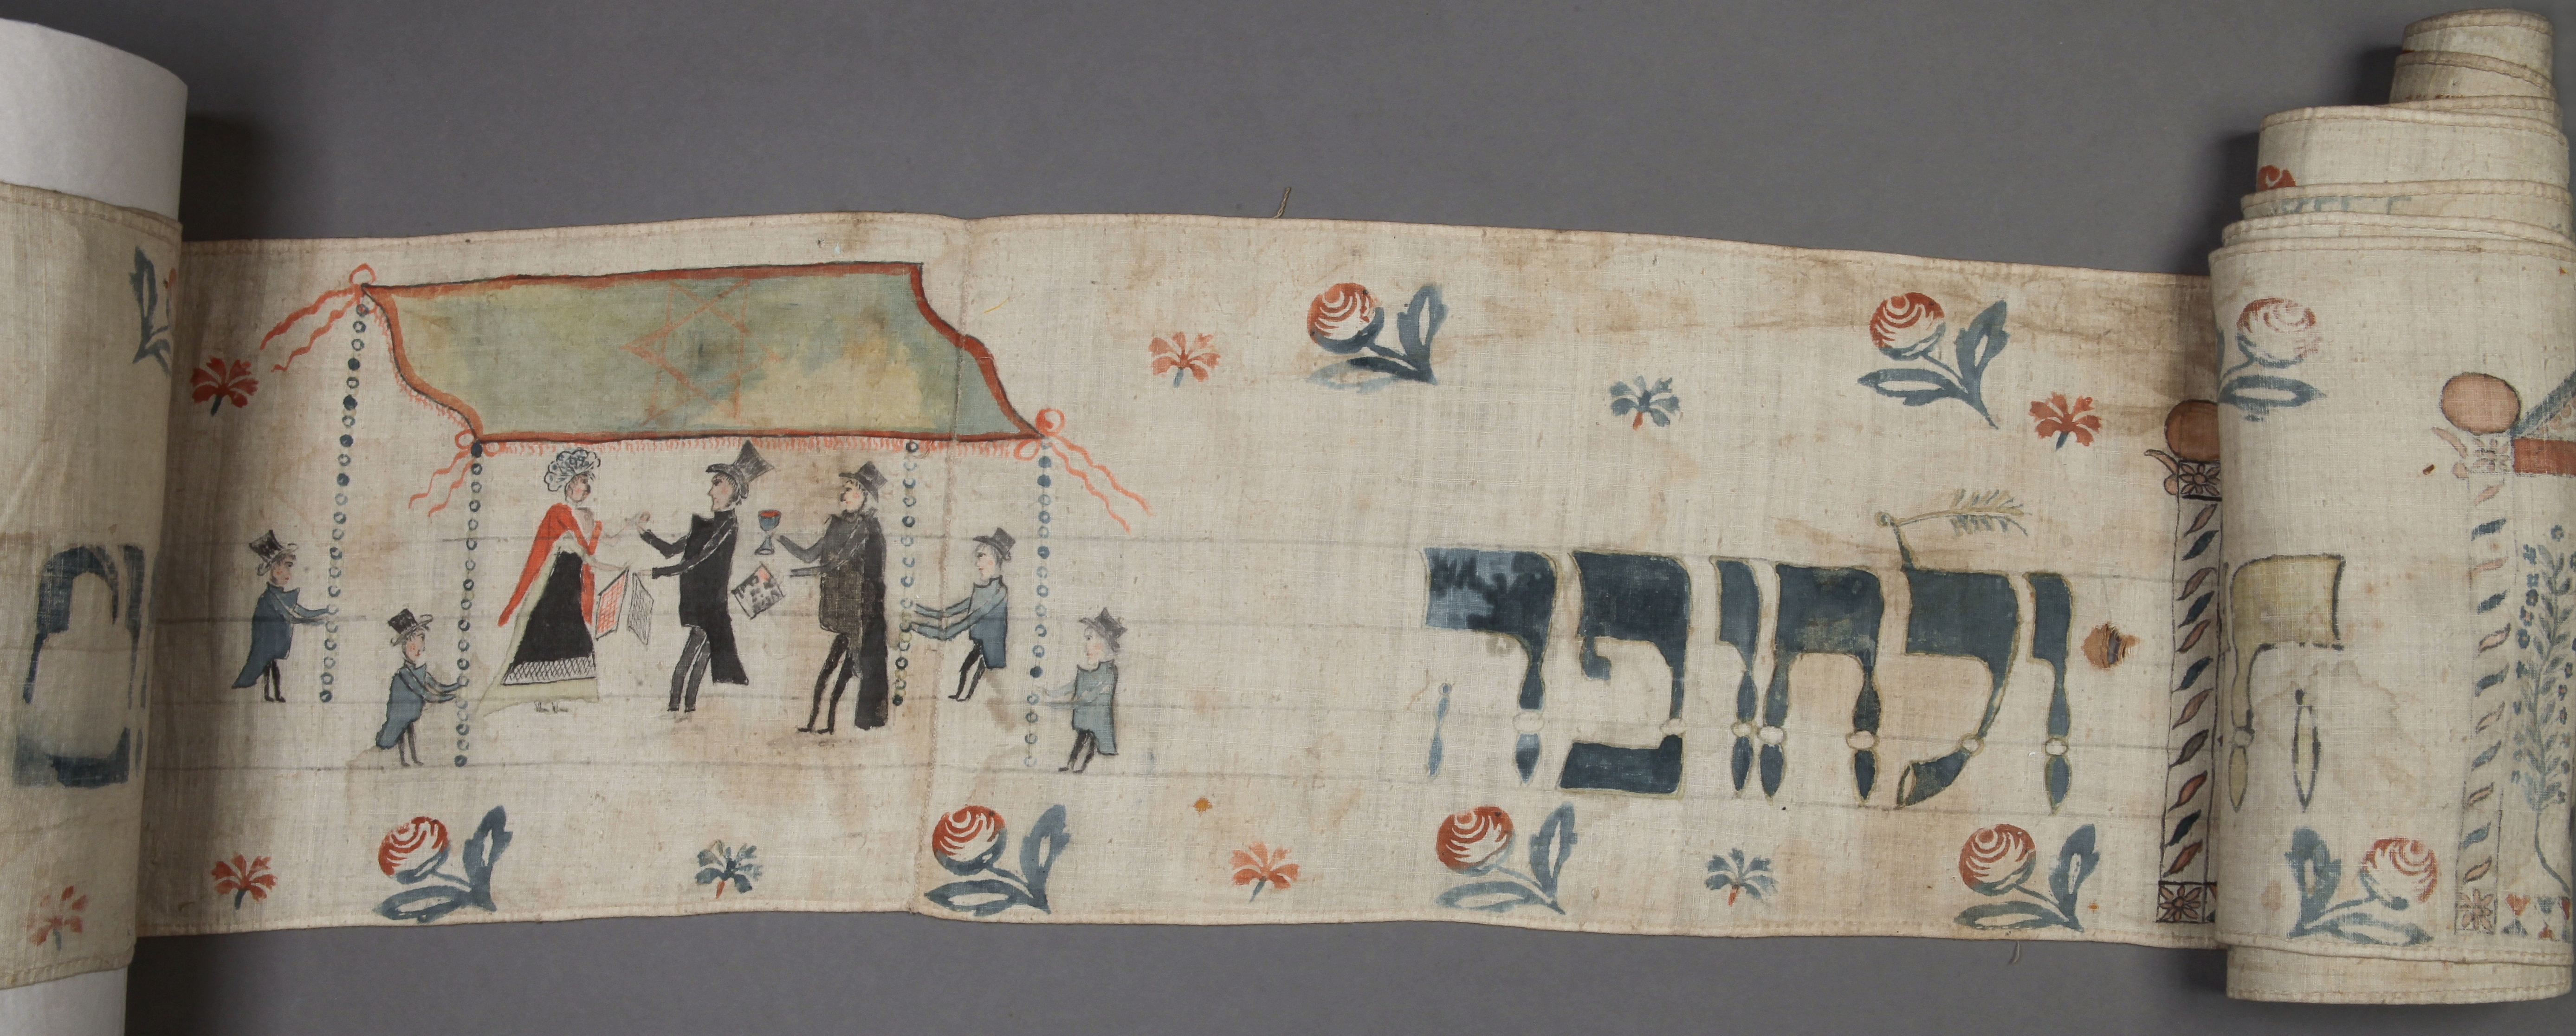 ולחופה